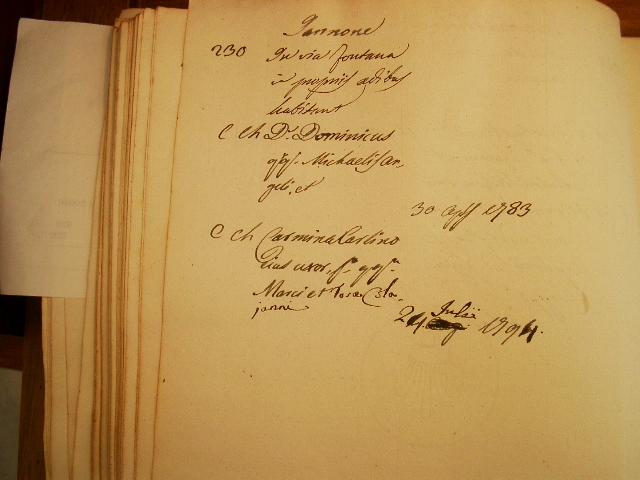 Iannone
230 In via fontana
in propriis ædibus
habitant
C Ch D. Dominicus
qq. Michaelis An,
geli, et
30 1783
C Ch Carmina Carlino
eius uxor, f. qq.
Marci et Rosæ
janni
24 Julii 1794.